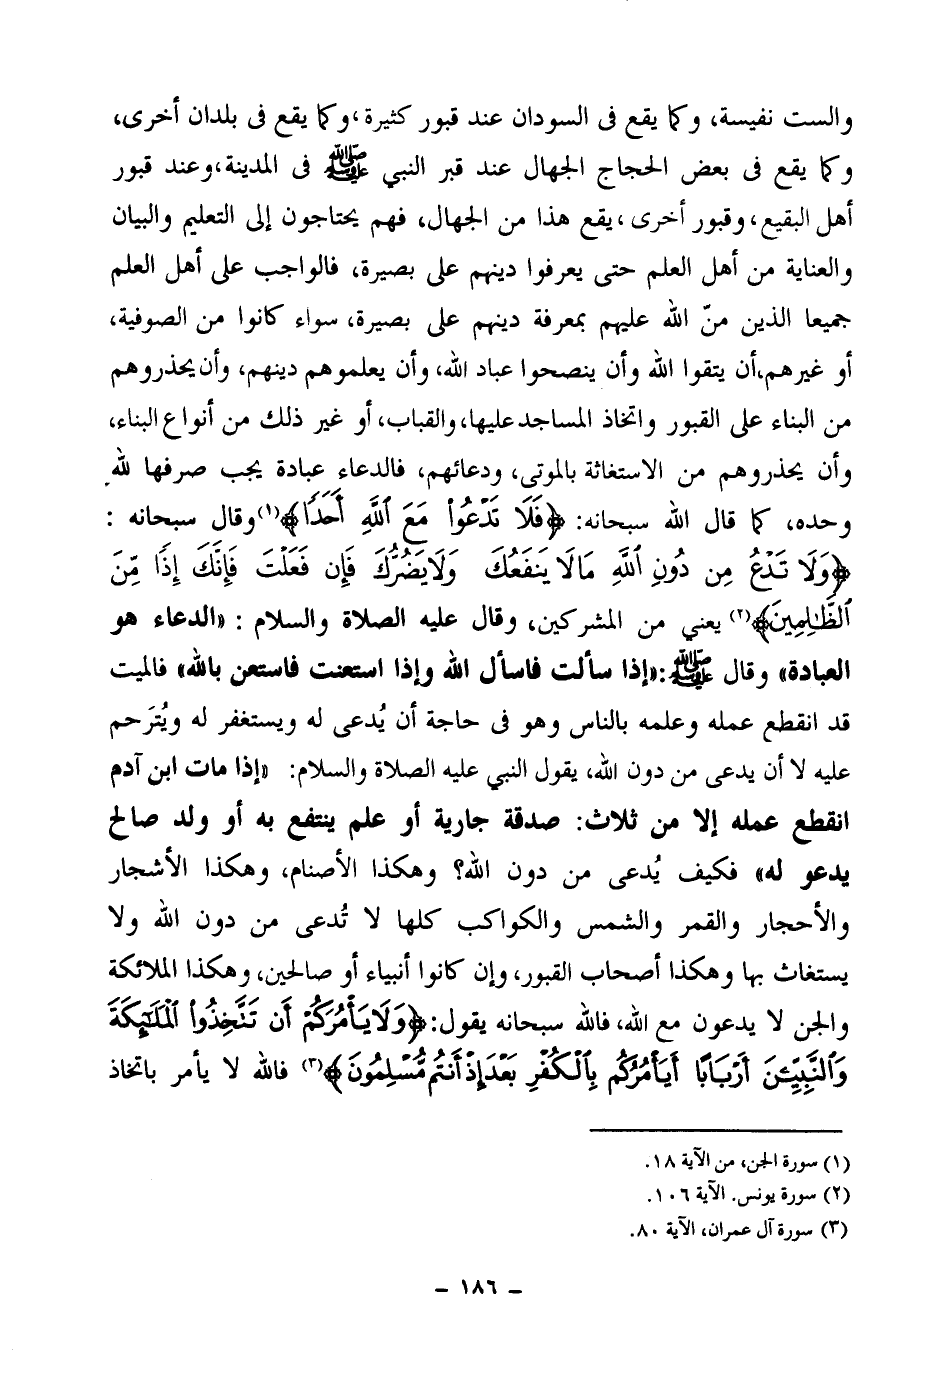 والست نفيسة، وكما يقع فى السودان عند قبور كثيرة، وكما يقع فى بلدان أخرى،
وكما يقع فى بعض الحجاج الجهال عند قبر النبي ﷺ فى المدينة، وعند قبور
أهل البقيع، وقبور أخرى، يقع هذا من الجهال، فهم يحتاجون إلى التعليم والبيان
والعناية من أهل العلم حتى يعرفوا دينهم على بصيرة، فالواجب على أهل العلم
جميعا الذين منّ الله عليهم بمعرفة دينهم على بصيرة، سواء كانوا من الصوفية،
أو غيرهم، أن يتقوا الله وأن ينصحوا عباد الله، وأن يعلموهم دينهم، وأن يحذروهم
من البناء على القبور واتخاذ المساجد عليها، والقباب، أو غير ذلك من أنواع البناء،
وأن يحذروهم من الاستغاثة بالموتى، ودعائهم، فالدعاء عبادة يجب صرفها لله
وحده، كما قال الله سبحانه: ﴿فَلَا تَدْعُواْ مَعَ ٱللَّهِ أَحَدًا﴾(١) وقال سبحانه :
﴿وَلَا تَدْعُ مِن دُونِ ٱللَّهِ مَالَا يَنفَعُكَ وَلَا يَضُرُّكَ فَإِن فَعَلْتَ فَإِنَّكَ إِذًا مِّنَ
ٱلظَّٰلِمِينَ﴾(٢) يعني من المشركين، وقال عليه الصلاة والسلام : «الدعاء هو
العبادة» وقال ﷺ: «إذا سألت فاسأل الله وإذا استعنت فاستعن بالله» فالميت
قد انقطع عمله وعلمه بالناس وهو فى حاجة أن يُدعى له ويستغفر له ويُتَرحم
عليه لا أن يدعى من دون الله، يقول النبي عليه الصلاة والسلام: «إذا مات ابن آدم
انقطع عمله إلا من ثلاث: صدقة جارية أو علم ينتفع به أو ولد صالح
يدعو له» فكيف يُدعى من دون الله؟ وهكذا الأصنام، وهكذا الأشجار
والأحجار والقمر والشمس والكواكب كلها لا تُدعى من دون الله ولا
يستغاث بها وهكذا أصحاب القبور، وإن كانوا أنبياء أو صالحين، وهكذا الملائكة
والجن لا يدعون مع الله، فالله سبحانه يقول: ﴿وَلَا يَأْمُرَكُمْ أَن تَتَّخِذُواْ ٱلْمَلَٰٓئِكَةَ
وَٱلنَّبِيِّـۧنَ أَرْبَابًا أَيَأْمُرُكُم بِٱلْكُفْرِ بَعْدَ إِذْ أَنتُم مُّسْلِمُونَ﴾(٣) فالله لا يأمر باتخاذ
(١) سورة الجن، من الآية ١٨.
(٢) سورة يونس. الآية ١٠٦.
(٣) سورة آل عمران، الآية ٨٠.
- ١٨٦ -